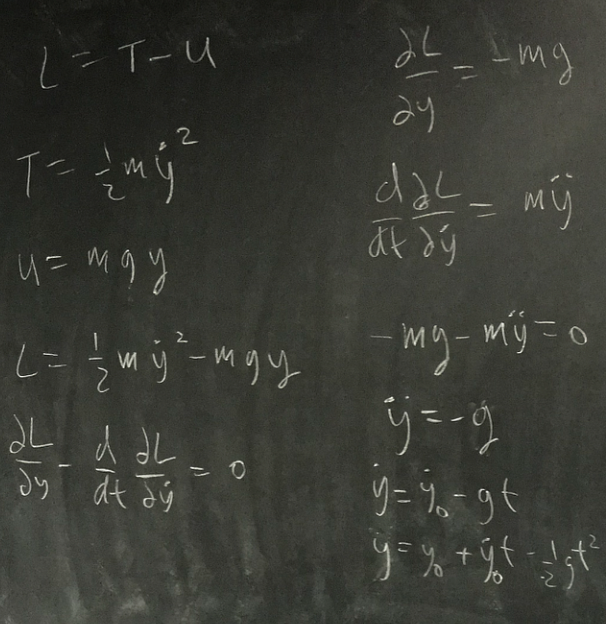 L = T - U
T = ½mẏ²
U = mgy
L = ½mẏ² - mgy
∂L/∂y - d/dt ∂L/∂ẏ = 0
∂L/∂y = -mg
d/dt ∂L/∂ẏ = mÿ
-mg - mÿ = 0
ÿ = -g
ẏ = ẏ₀ - gt
y = y₀ + ẏ₀t - ½gt²